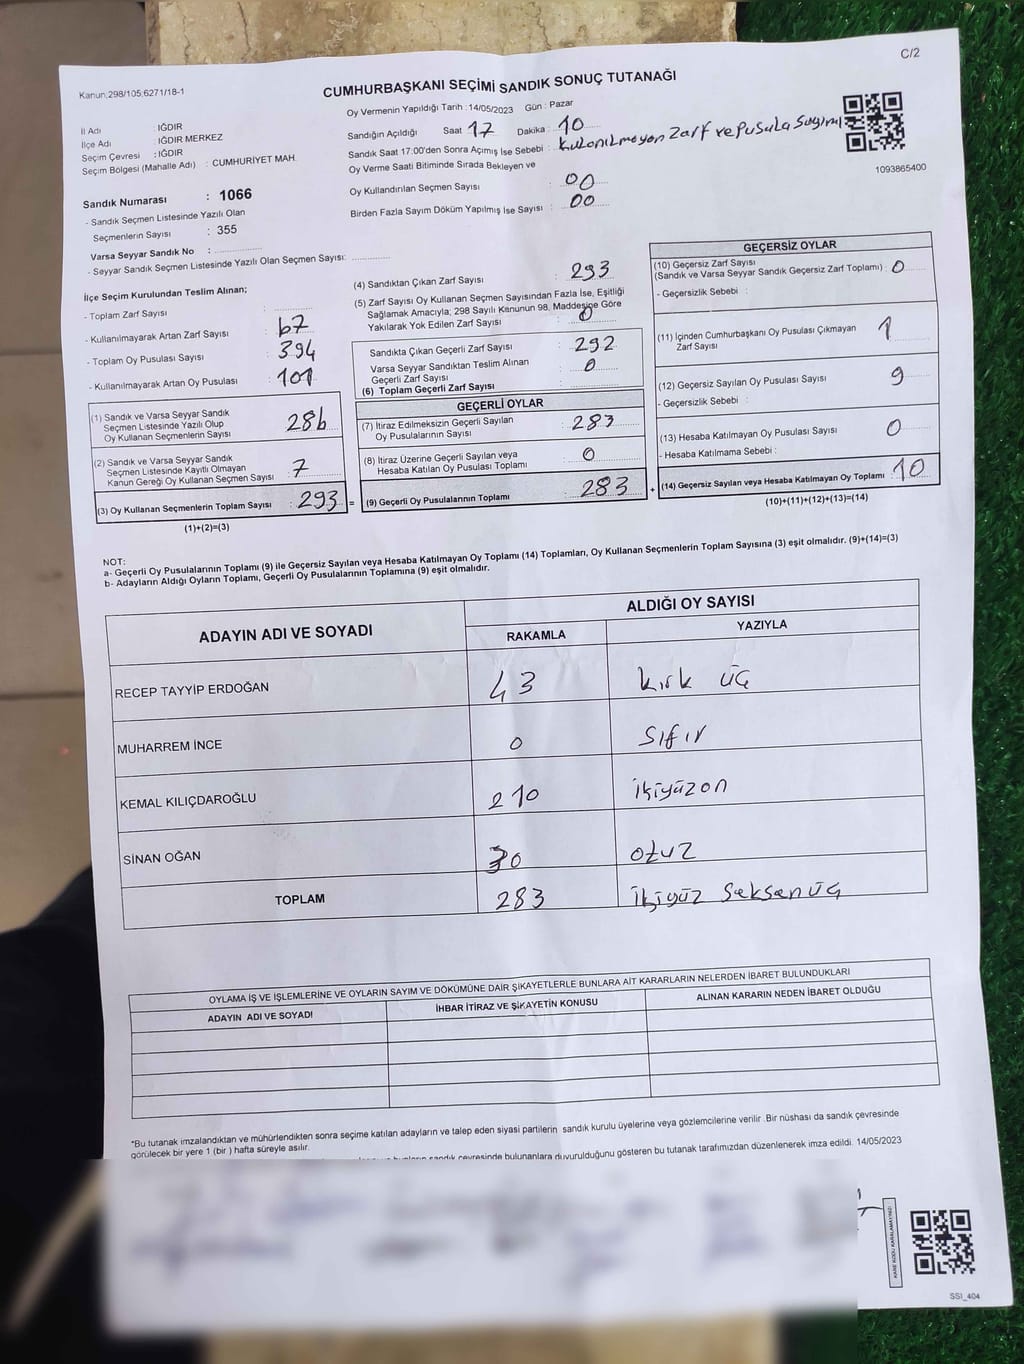 C/2
Kanun.298/105;6271/18-1
CUMHURBAŞKANI SEÇİMİ SANDIK SONUÇ TUTANAĞI
Oy Vermenin Yapıldığı Tarih : 14/05/2023 Gün : Pazar
İl Adı : IĞDIR
İlçe Adı : IĞDIR MERKEZ
Seçim Çevresi : IĞDIR
Seçim Bölgesi (Mahalle Adı) : CUMHURİYET MAH.
Sandığın Açıldığı Saat 17 Dakika : 10
Sandık Saat 17:00'den Sonra Açımış İse Sebebi : Kullanılmayan Zarf ve Pusula Sayımı
Oy Verme Saati Bitiminde Sırada Bekleyen ve
Oy Kullandırılan Seçmen Sayısı : 00
Birden Fazla Sayım Döküm Yapılmış İse Sayısı : 00
1093865400
Sandık Numarası : 1066
- Sandık Seçmen Listesinde Yazılı Olan
Seçmenlerin Sayısı : 355
Varsa Seyyar Sandık No :
- Seyyar Sandık Seçmen Listesinde Yazılı Olan Seçmen Sayısı:
İlçe Seçim Kurulundan Teslim Alınan;
- Toplam Zarf Sayısı :
- Kullanılmayarak Artan Zarf Sayısı : 67
- Toplam Oy Pusulası Sayısı : 394
- Kullanılmayarak Artan Oy Pusulası : 101
(1) Sandık ve Varsa Seyyar Sandık
Seçmen Listesinde Yazılı Olup
Oy Kullanan Seçmenlerin Sayısı : 286
(2) Sandık ve Varsa Seyyar Sandık
Seçmen Listesinde Kayıtlı Olmayan
Kanun Gereği Oy Kullanan Seçmen Sayısı : 7
(3) Oy Kullanan Seçmenlerin Toplam Sayısı : 293 =
(1)+(2)=(3)
(4) Sandıktan Çıkan Zarf Sayısı : 293
(5) Zarf Sayısı Oy Kullanan Seçmen Sayısından Fazla İse, Eşitliği
Sağlamak Amacıyla; 298 Sayılı Kanunun 98. Maddesine Göre
Yakılarak Yok Edilen Zarf Sayısı : 0
Sandıkta Çıkan Geçerli Zarf Sayısı : 292
Varsa Seyyar Sandıktan Teslim Alınan
Geçerli Zarf Sayısı : 0
(6) Toplam Geçerli Zarf Sayısı :
GEÇERLİ OYLAR
(7) İtiraz Edilmeksizin Geçerli Sayılan
Oy Pusulalarının Sayısı : 283
(8) İtiraz Üzerine Geçerli Sayılan veya
Hesaba Katılan Oy Pusulası Toplamı : 0
(9) Geçerli Oy Pusulalarının Toplamı : 283 +
GEÇERSİZ OYLAR
(10) Geçersiz Zarf Sayısı
(Sandık ve Varsa Seyyar Sandık Geçersiz Zarf Toplamı) : 0
- Geçersizlik Sebebi :
(11) İçinden Cumhurbaşkanı Oy Pusulası Çıkmayan
Zarf Sayısı : 1
(12) Geçersiz Sayılan Oy Pusulası Sayısı : 9
- Geçersizlik Sebebi :
(13) Hesaba Katılmayan Oy Pusulası Sayısı : 0
- Hesaba Katılmama Sebebi :
(14) Geçersiz Sayılan veya Hesaba Katılmayan Oy Toplamı : 10
(10)+(11)+(12)+(13)=(14)
NOT:
a- Geçerli Oy Pusulalarının Toplamı (9) ile Geçersiz Sayılan veya Hesaba Katılmayan Oy Toplamı (14) Toplamları, Oy Kullanan Seçmenlerin Toplam Sayısına (3) eşit olmalıdır. (9)+(14)=(3)
b- Adayların Aldığı Oyların Toplamı, Geçerli Oy Pusulalarının Toplamına (9) eşit olmalıdır.
ADAYIN ADI VE SOYADI ALDIĞI OY SAYISI
RAKAMLA YAZIYLA
RECEP TAYYİP ERDOĞAN 43 kırk üç
MUHARREM İNCE 0 Sıfır
KEMAL KILIÇDAROĞLU 210 ikiyüzon
SİNAN OĞAN 30 otuz
TOPLAM 283 ikiyüz seksenüç
OYLAMA İŞ VE İŞLEMLERİNE VE OYLARIN SAYIM VE DÖKÜMÜNE DAİR ŞİKAYETLERLE BUNLARA AİT KARARLARIN NELERDEN İBARET BULUNDUKLARI
ADAYIN ADI VE SOYADI İHBAR İTİRAZ VE ŞİKAYETİN KONUSU ALINAN KARARIN NEDEN İBARET OLDUĞU
*Bu tutanak imzalandıktan ve mühürlendikten sonra seçime katılan adayların ve talep eden siyasi partilerin sandık kurulu üyelerine veya gözlemcilerine verilir .Bir nüshası da sandık çevresinde
görülecek bir yere 1 (bir ) hafta süreyle asılır.
sandık çevresinde bulunanlara duyurulduğunu gösteren bu tutanak tarafımızdan düzenlenerek imza edildi. 14/05/2023
KARE KODU KARALAMAYINIZ!
SSI_404